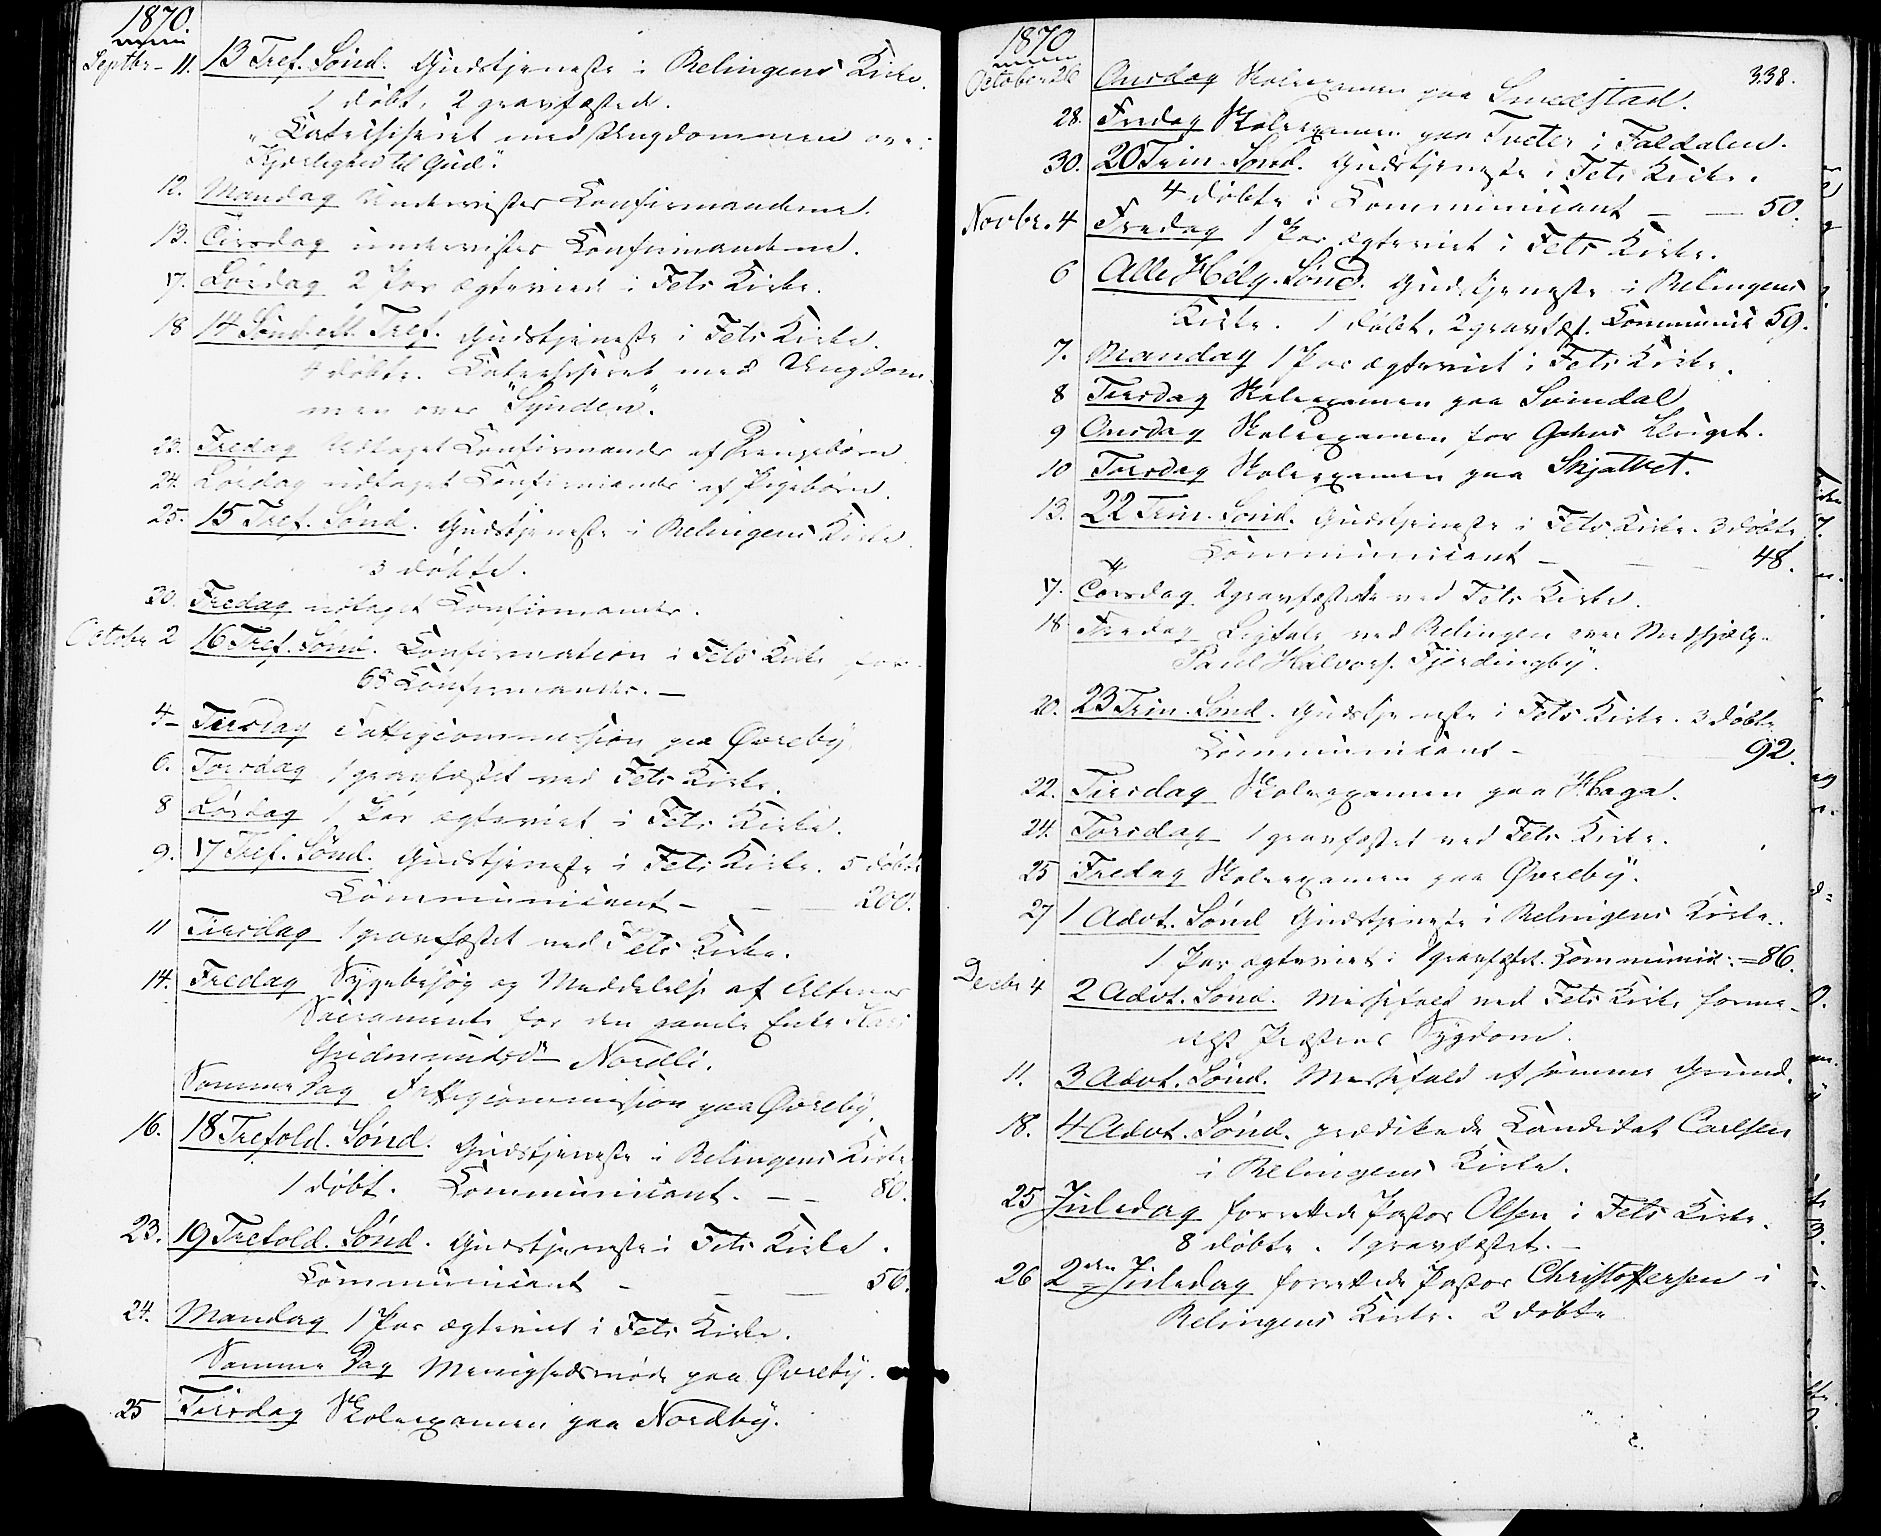 1870.
Septbr. 11. 13 Tref. Sønd. Gudstjeneste i Relingens Kirke.
1 døbt, 2 gravfæstede.
" Catechiseret med Ungdommen over:
"Kjærlighed til Gud".
12. Mandag Undervister Confirmanderne.
13. Tirsdag undervister Confirmanderne.
17. Lørdag 2 Par ægteviede i Fets Kirke.
18 14 Sønd. eft. Tref. Gudstjeneste i Fets Kirke.
4 døbte. Catechiseret med Ungdom-
men over "Synden".
23. Fredag Udtaget Confirmander af Drengebørn
24. Lørdag udtaget Confirmander af Pigebørn.
25. 15 Tref. Sønd. Gudstjeneste i Relingens Kirke.
3 døbte.
30. Fredag udtaget Confirmander.
October 2 16 Tref. Sønd. Confirmation i Fets Kirke for
Confirmander. —
4 – Tirsdag Fattigcommission paa Øvreby
6. Torsdag 1 gravfæstet ved Fets Kirke.
8 Lørdag 1 Par ægteviet i Fets Kirke.
9. 17 Tref. Sønd. Gudstjeneste i Fets Kirke. 5 døbte
Communicant – — — 200.
11 Tirsdag 1 gravfæstet ved Fets Kirke.
14. Fredag Sygebesøg og Meddelelse af Alterens
Sacramente for den gamle Enke Kari
Gudmundsd. Nordli.
Samme Dag Fattigcommission paa Øvreby.
16. 18 Trefold. Sønd. Gudstjeneste i Relingens Kirke
1 døbt. Communicant. — — 80.
23. 19 Trefold. Sønd. Gudstjeneste i Fets Kirke.
Communicant – — — 56.
24. Mandag 1 Par ægteviet i Fets Kirke.
Samme Dag Menighedsmøde paa Øvreby.
25 Tirsdag Skoleexamen paa Nordby.
1870
338.
October 26 Onsdag Skoleexamen paa Smedstad.
28. Fredag Skoleexamen paa Tveter i Faldalen.
30. 20 Trin. Sønd. Gudstjeneste i Fets Kirke.
4 døbte i Communicant — — 50.
Novbr. 4 Fredag 1 Par ægteviet i Fets Kirke.
6 Alle Helg. Sønd. Gudstjeneste i Relingens
Kirke. 1 døbt, 2 gravfæst. Communic 59.
7. Mandag 1 Par ægteviet i Fets Kirke.
8 Tirsdag Skoleexamen paa Svindal
9 Onsdag Skoleexamen for Gahus
10 Torsdag Skoleexamen paa Skjatvet.
13. 22 Trin. Sønd. Gudstjeneste i Fets Kirke. 3 døbte
Communicant — — 48.
17. Torsdag 2 gravfæstede ved Fets Kirke.
18 Fredag Ligtale ved Relingen over Medhjælp.
Paul Halvors. Fjerdingby.
20. 23 Trin. Sønd. Gudstjeneste i Fets Kirke. 3 døbte
Communicant – 92.
22. Tirsdag Skoleexamen paa Haga.
24. Torsdag 1 gravfæstet ved Fets Kirke.
25 Fredag Skoleexamen paa Øvreby.
27 1 Advt. Sønd Gudstjeneste i Relingens Kirke.
1 Par ægteviet. 1 gravfæstet. Communic: = 86.
Decbr 4 2 Advt. Sønd. Messefald ved Fets Kirke forme-
delst Præstens Sygdom.
11. 3 Advt. Sønd. Messefald af samme Grund.
18. 4 Advt. Sønd. prædikede Candidat Carlsen
i Relingens Kirke.
25 Juledag forrettede Pastor Olsen i Fets Kirke.
8 døbte. 1 gravfæstet. –
26 2den Juledag forrettede Pastor Christoffersen i
Relingens Kirke. 2 døbte